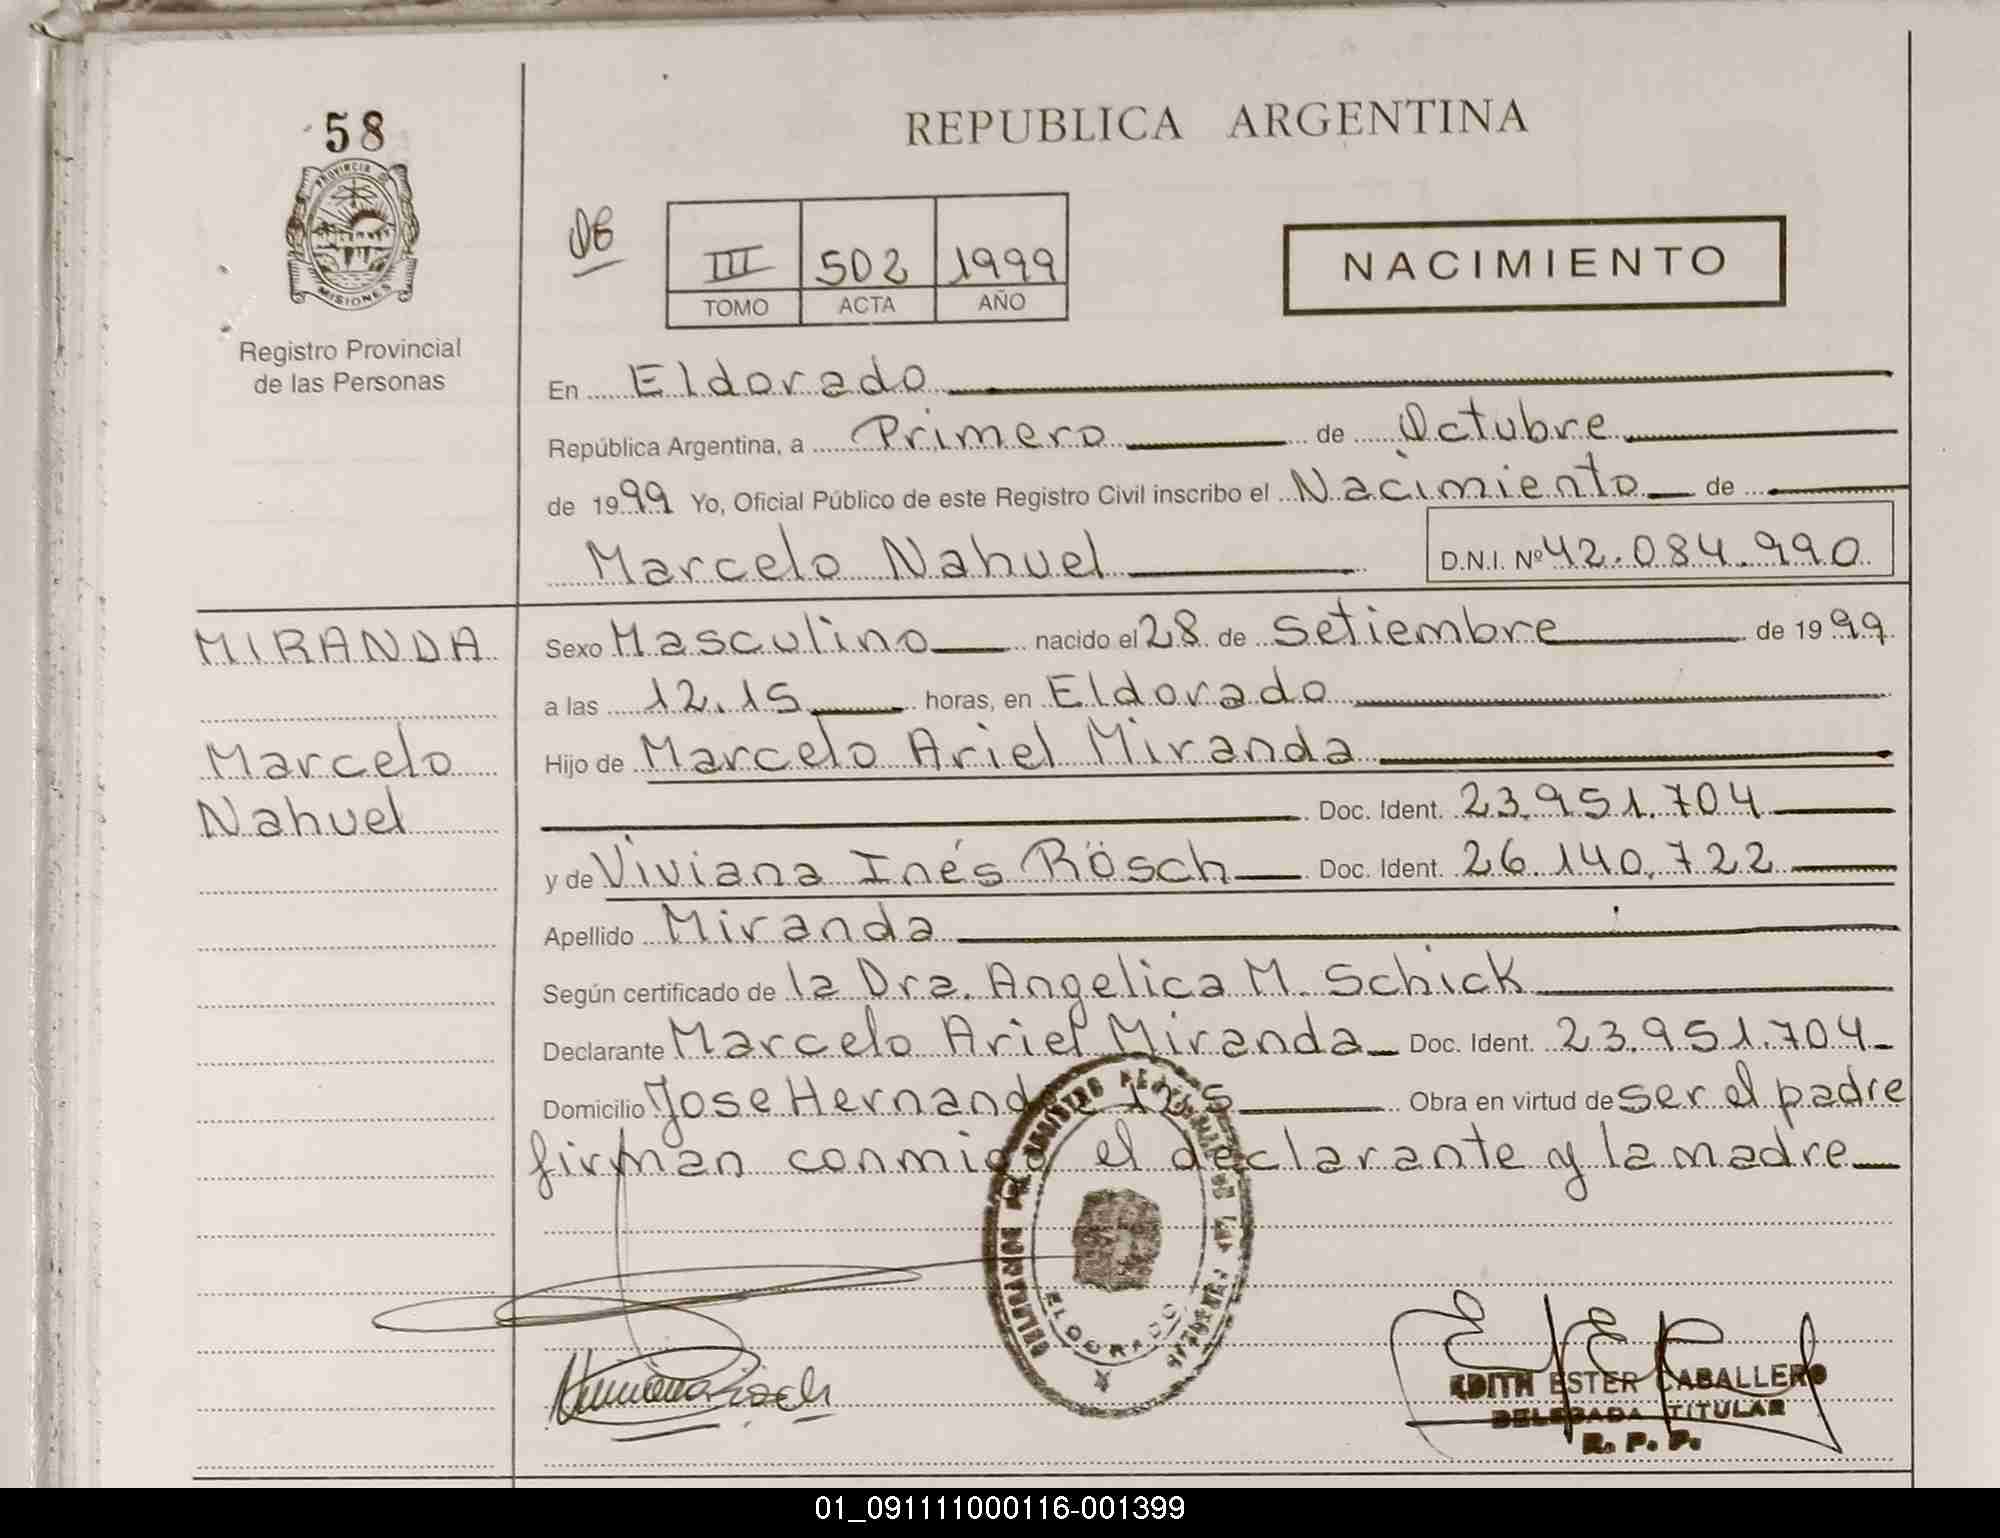 58
PROVINCIA DE
MISIONES
Registro Provincial
de las Personas
REPUBLICA ARGENTINA
III 502 1999
TOMO ACTA AÑO
NACIMIENTO
En Eldorado
República Argentina, a Primero de Octubre
de 1999 Yo, Oficial Público de este Registro Civil inscribo el Nacimiento de
Marcelo Nahuel D.N.I. Nº 42.084.990
MIRANDA
Marcelo
Nahuel
Sexo Masculino nacido el 28 de Setiembre de 1999
a las 12.15 horas, en Eldorado
Hijo de Marcelo Ariel Miranda
Doc. Ident. 23.951.704
y de Viviana Inés Rösch Doc. Ident. 26.140.722
Apellido Miranda
Según certificado de la Dra. Angelica M. Schick
Declarante Marcelo Ariel Miranda Doc. Ident. 23.951.704
Domicilio Jose Hernandez Obra en virtud de ser el padre
firman conmigo el declarante y la madre
ELDORADO
EDITH ESTER CABALLERO
DELEGADA TITULAR
R. P. P.
01_091111000116-001399